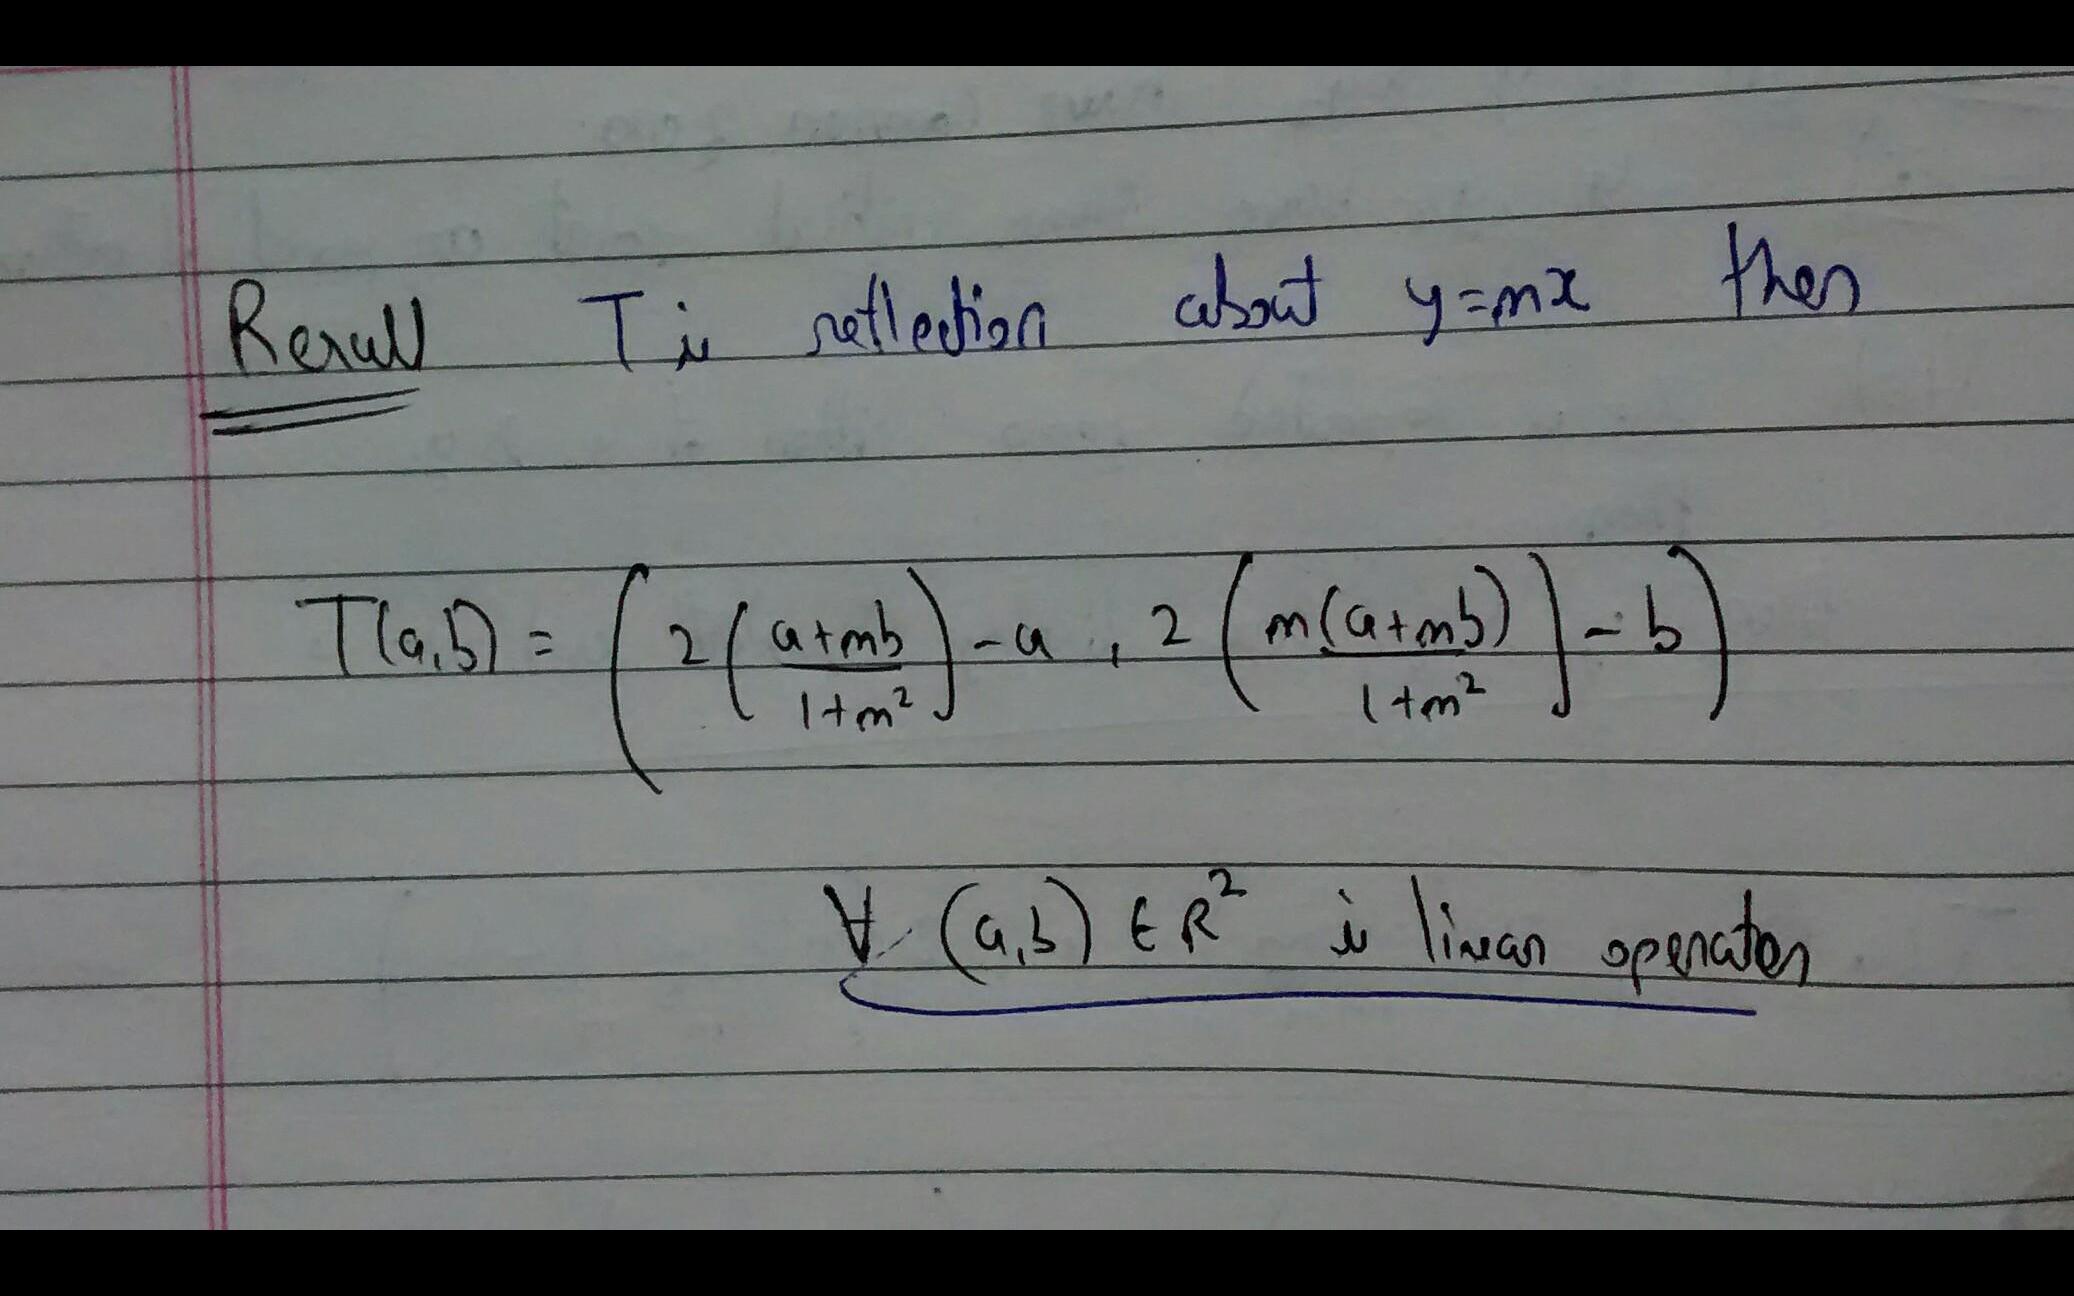 Recall T is reflection about y=mx then
T(a,b) = ( 2 ( (a+mb)/(1+m²) ) - a , 2 ( m(a+mb)/(1+m²) ) - b )
∀ (a,b) ∈ R² is linear operator